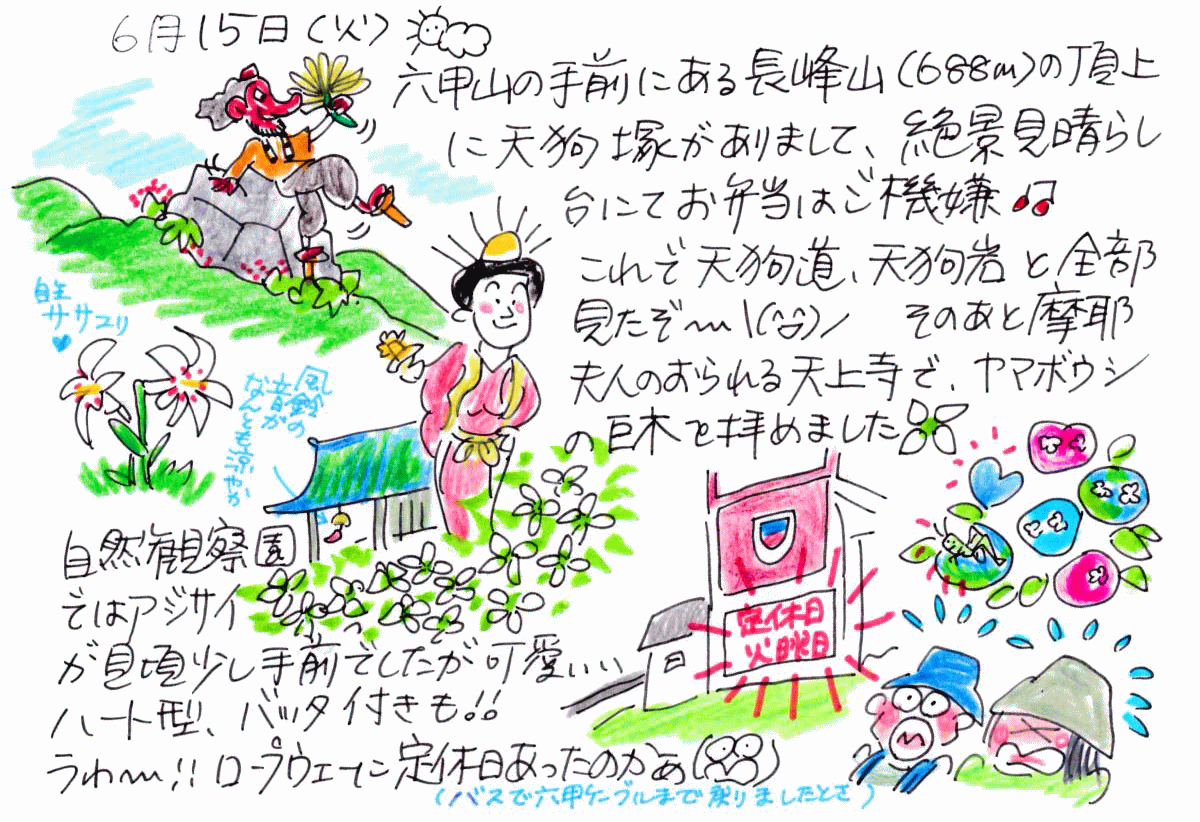 6月15日(火)
六甲山の手前にある長峰山(688m)の頂上
に天狗塚がありまして、絶景見晴らし
台にてお弁当はご機嫌♫
これで天狗道、天狗岩と全部
見たぞ〜\(^Q^)/ そのあと摩耶
夫人のおられる天上寺で、ヤマボウシ
の巨木を拝めました
自生
ササユリ
風鈴の
音が
なんとも涼やか
自然観察園
ではアジサイ
が見頃少し手前でしたが可愛いぃ
ハート型、バッタ付きも!!
うわ〜!!ロープウェーに定休日あったのかぁ
(バスで六甲ケーブルまで戻りましたとさ)
定休日
火曜日